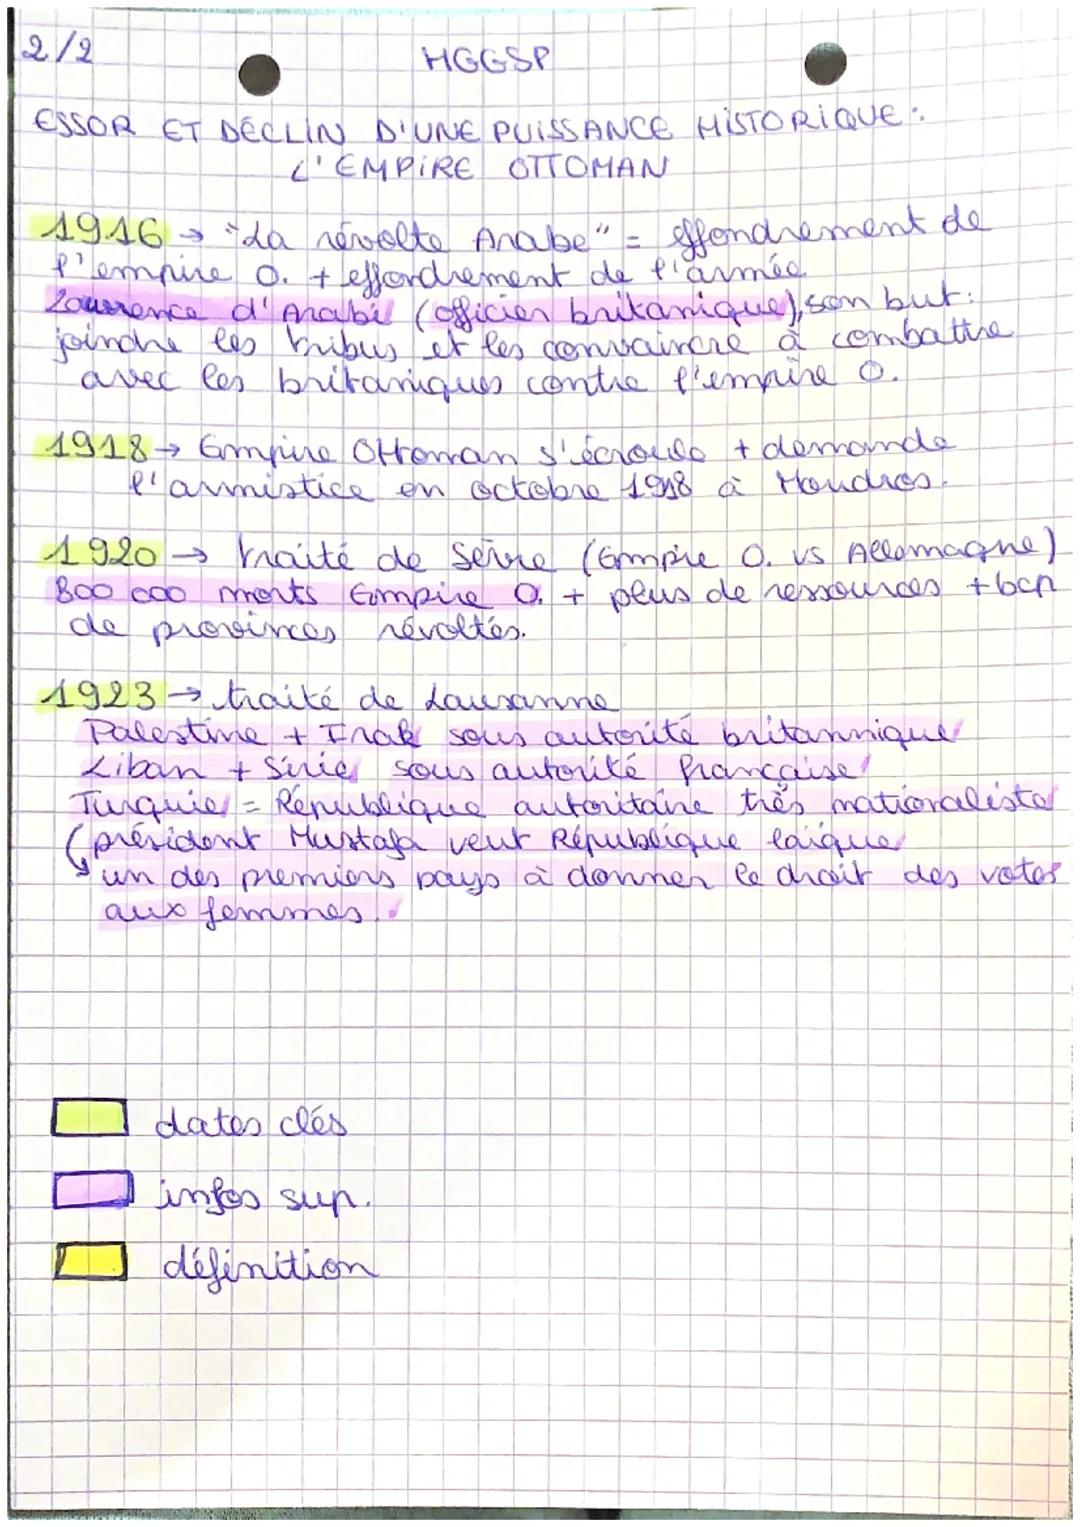 2/2
HGGSP
ESSOR ET DÉCLIN D'UNE PUISSANCE HISTORIQUE :
L'EMPIRE OTTOMAN
1916 → "La révolte Arabe" = effondrement de
l'empire O. + effondrement de l'armée.
Lourence d'Arabi (officier britanique), son but :
joindre les tribus et les convaincre à combattre
avec les britaniques contre l'empire O.
1918 → Empire Ottoman s'écroule + demande
l'armistice en octobre 1918 à Moudros.
1920 → traité de Sèvre (Empire O. vs Allemagne)
800 000 morts Empire O. + plus de ressources + bcp
de provinces révoltés.
1923 → traité de Lausanne
Palestine + Irak sous autorité britannique
Liban + Sirie sous autorité française
Turquie = République autoritaire très nationaliste
(président Mustafa veut République laïque
↳ un des premiers pays à donner le droit des votes
aux femmes.
dates clés
infos sup.
définition